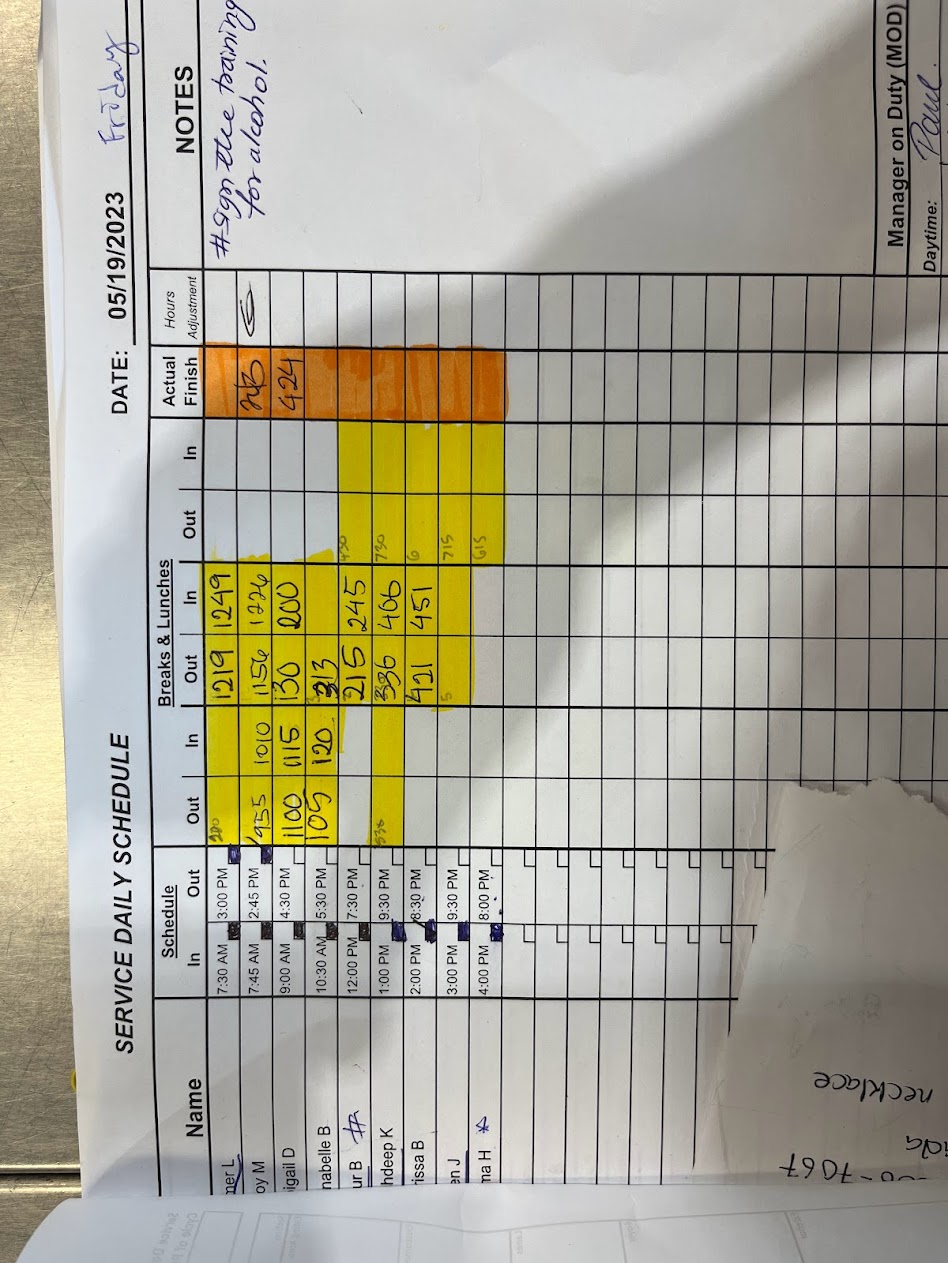 SERVICE DAILY SCHEDULE
DATE: 05/19/2023 Friday
Name Schedule Breaks & Lunches Actual Finish Hours Adjustment NOTES
In Out Out In Out In Out In
ner L 7:30 AM 3:00 PM 1219 1249
oy M 7:45 AM 2:45 PM 955 1010 1156 1226
igail D 9:00 AM 4:30 PM 1100 1115 130 200 424
nabelle B 10:30 AM 5:30 PM 105 120 313
ur B # 12:00 PM 7:30 PM 215 245 430
hdeep K 1:00 PM 9:30 PM 530 336 406 730
rissa B 2:00 PM 8:30 PM 421 451 6
en J 3:00 PM 9:30 PM 5 715
na H * 4:00 PM 8:00 PM 615
#sign the training
for alcohol.
Manager on Duty (MOD)
Daytime: Paul.
necklace
ida
-7067